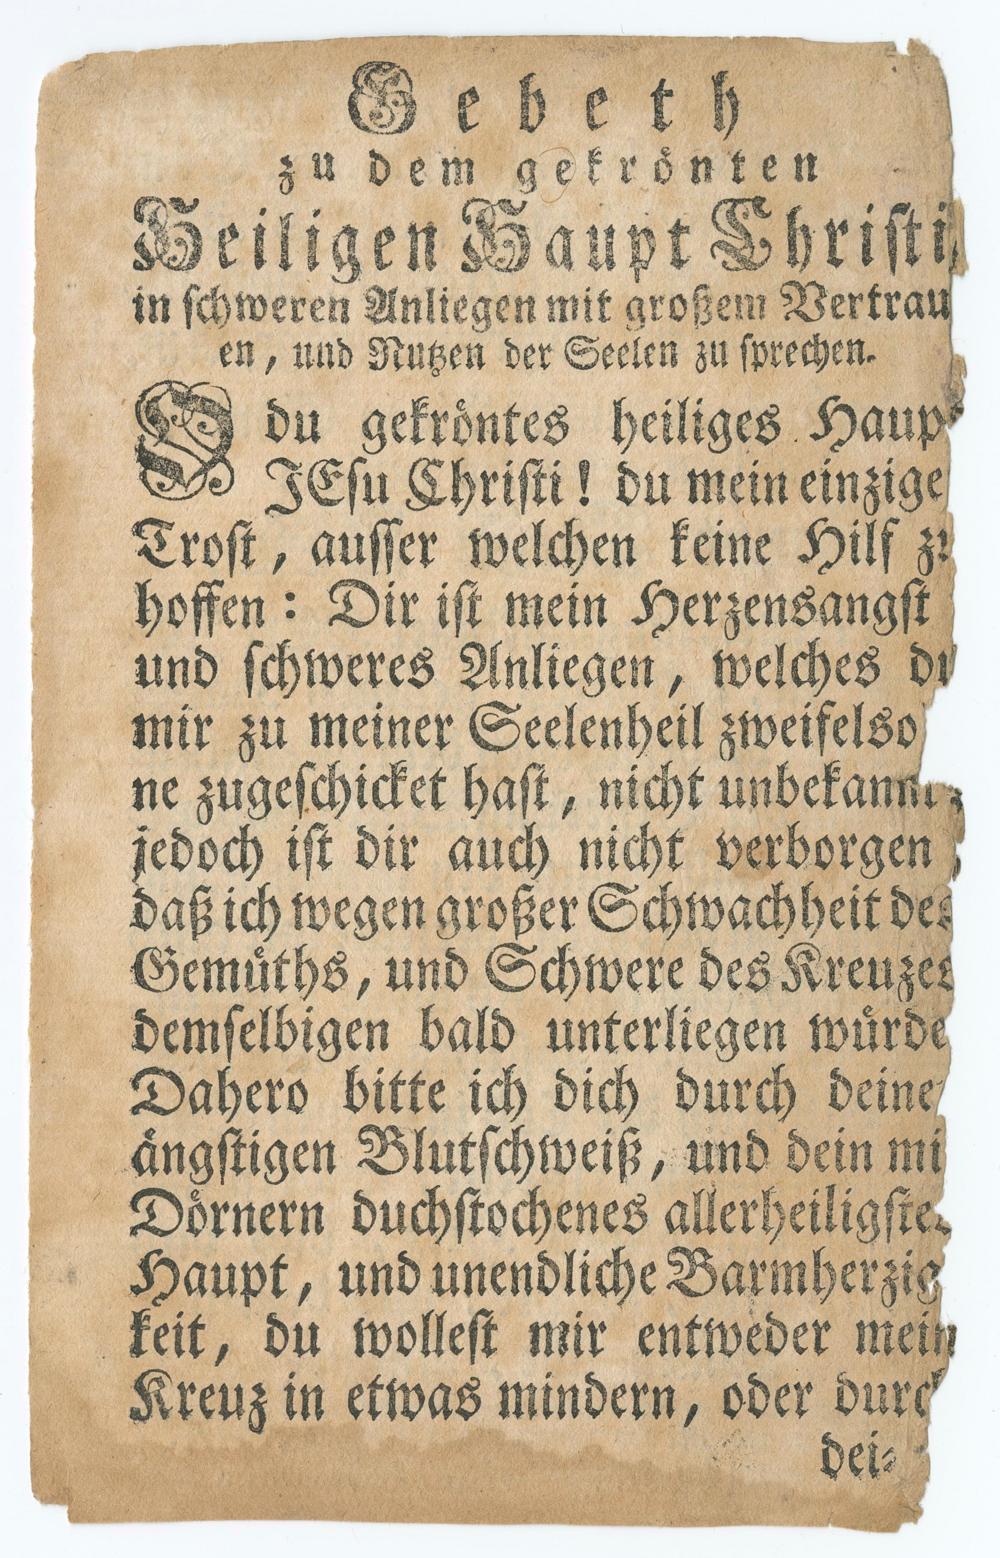 Gebeth
zu dem gekrönten
Heiligen Haupt Christi,
in schweren Anliegen mit großem Vertrau
en, und Nutzen der Seelen zu sprechen.
O du gekröntes heiliges Haup
JEsu Christi! du mein einzige
Trost, ausser welchen keine Hilf zu
hoffen: Dir ist mein Herzensangst
und schweres Anliegen, welches du
mir zu meiner Seelenheil zweifelso
ne zugeschicket hast, nicht unbekannt,
jedoch ist dir auch nicht verborgen,
daß ich wegen großer Schwachheit des
Gemüths, und Schwere des Kreuzes
demselbigen bald unterliegen würde
Dahero bitte ich dich durch deine
ängstigen Blutschweiß, und dein mi
Dörnern duchstochenes allerheiligste
Haupt, und unendliche Barmherzig
keit, du wollest mir entweder mein
Kreuz in etwas mindern, oder durc
dei-